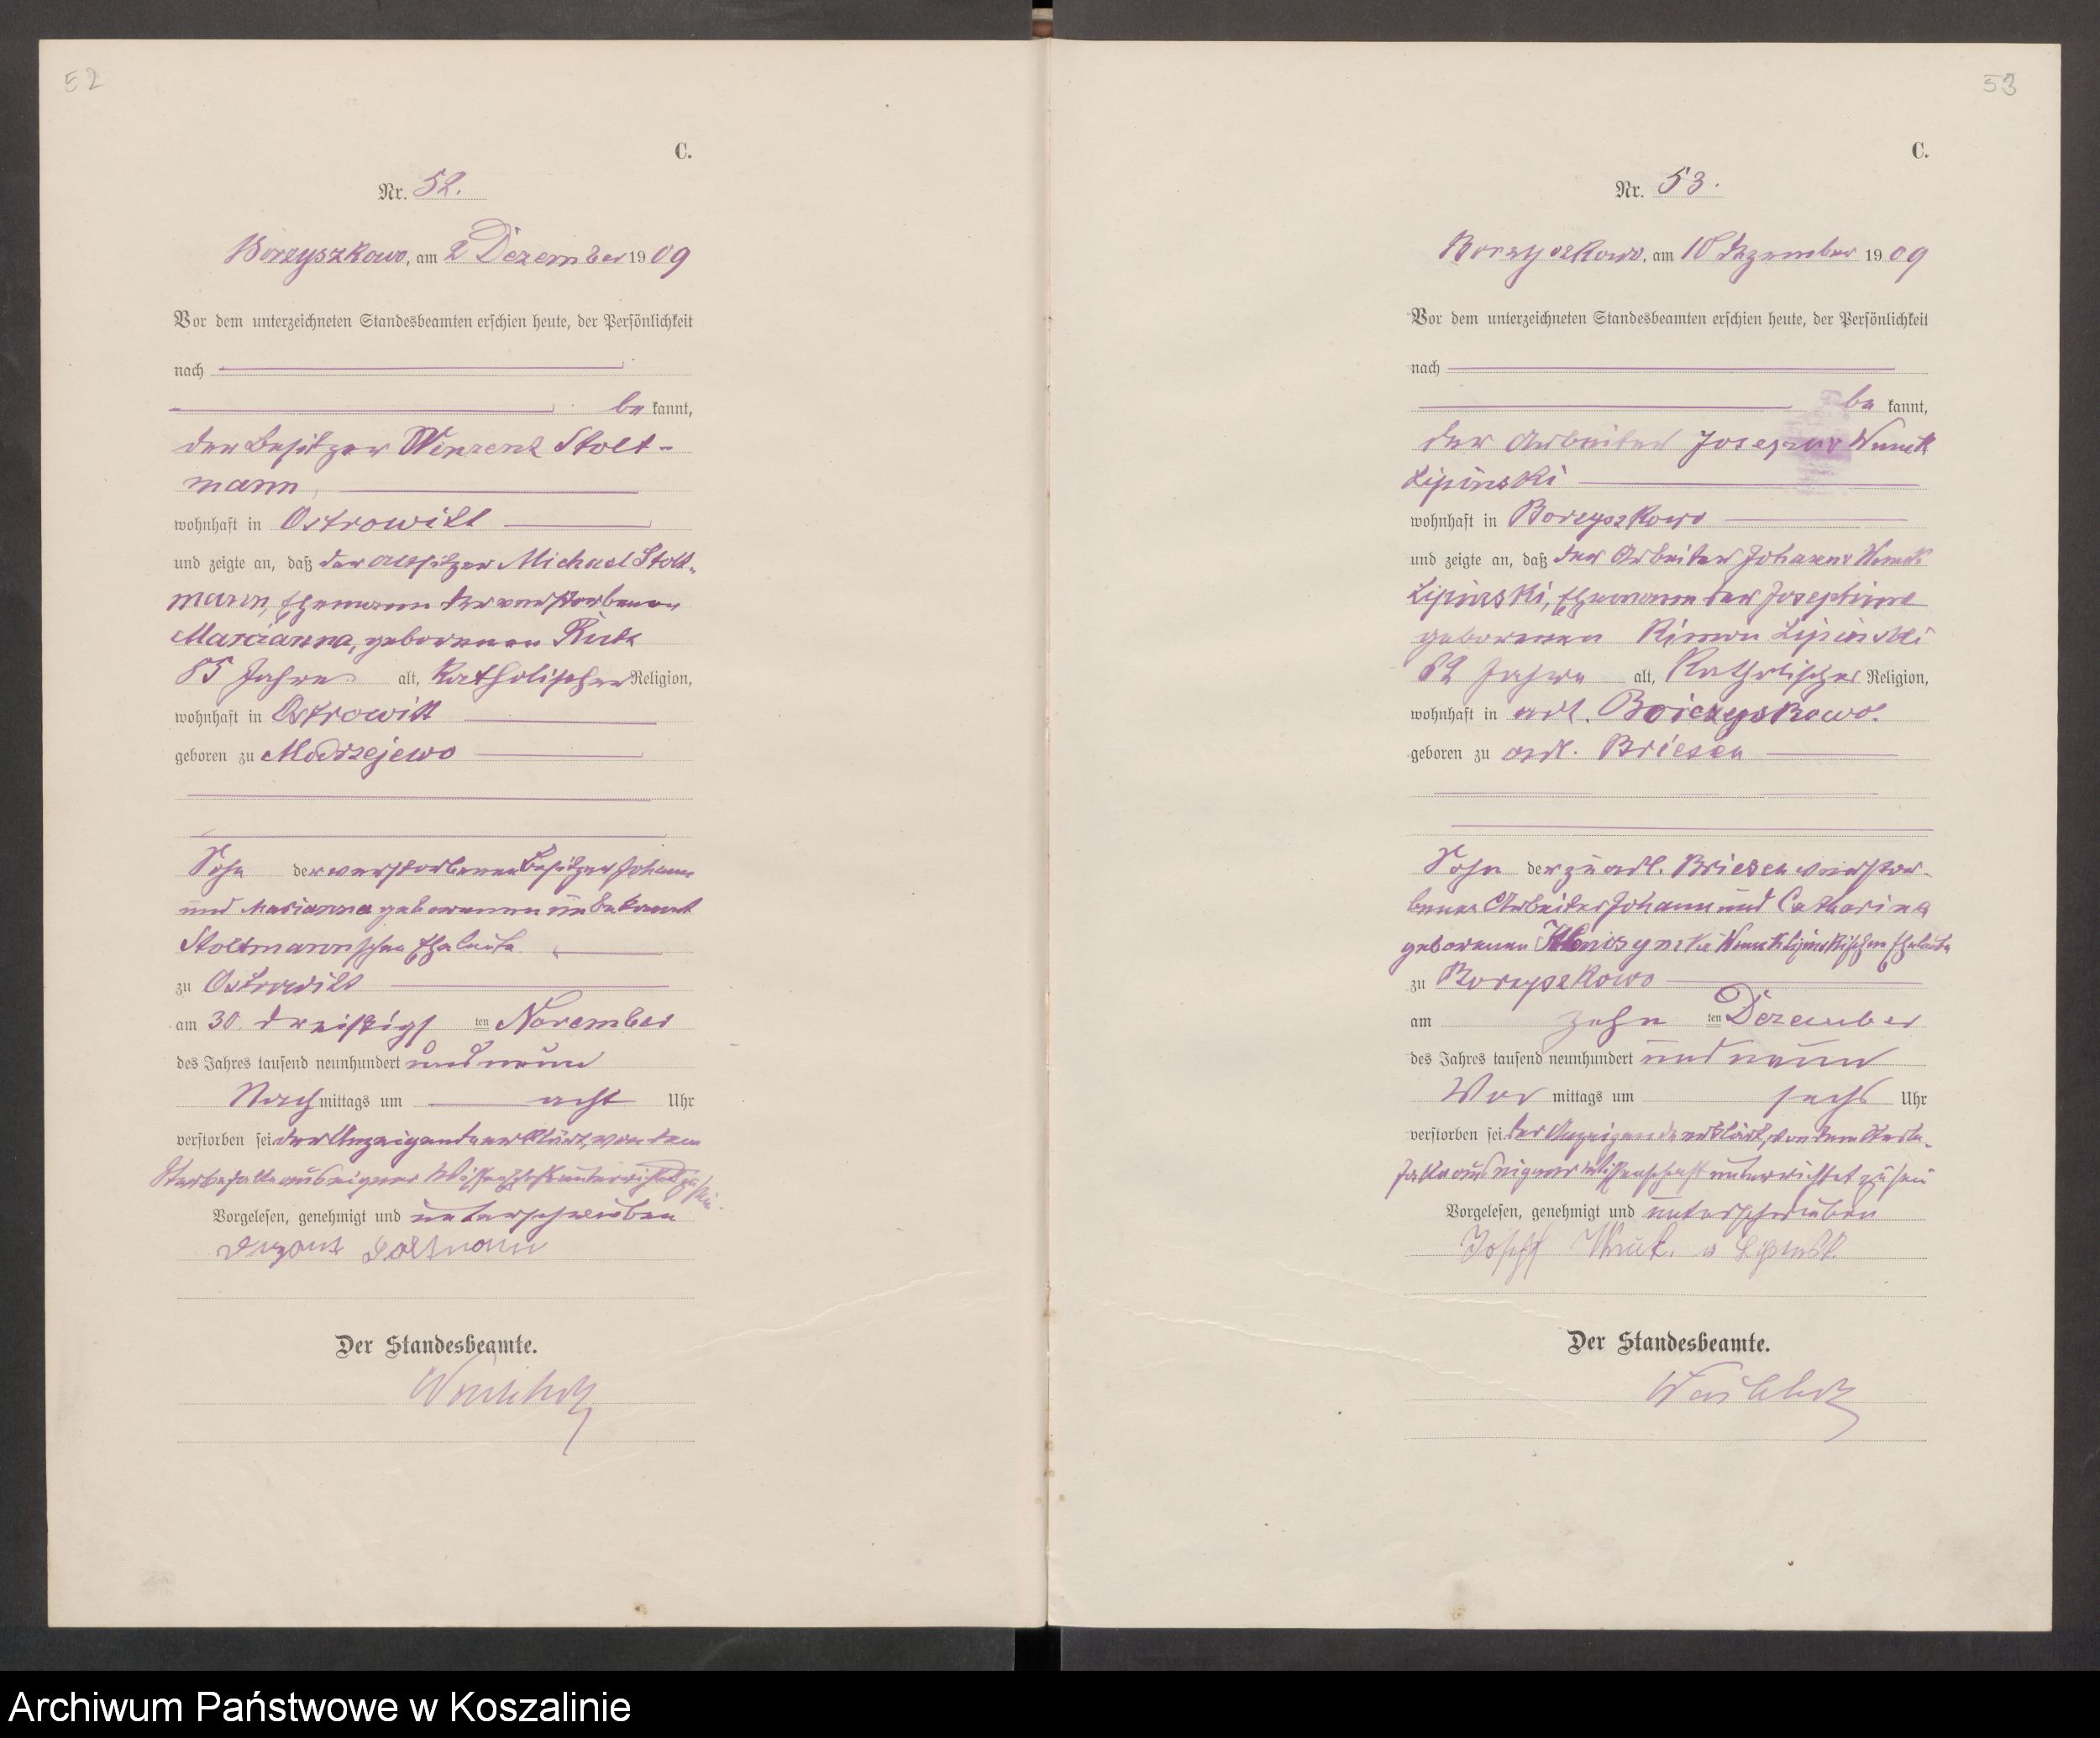 52
C.
Nr. 52.
Borzyszkowo, am 2 Dezember 1909
Vor dem unterzeichneten Standesbeamten erschien heute, der Persönlichkeit
nach
be kannt,
der Besitzer Vinzent Stolt-
mann,
wohnhaft in Ostrowitt
und zeigte an, daß der Altsitzer Michael Stolt-
mann, Ehemann der verstorbenen
Marianna, geborenen
85 Jahre alt, Katholischer Religion,
wohnhaft in Ostrowitt
geboren zu Modrzejewo
Sohn der verstorbenen Besitzer Johann
und Marianna geborenen unbekannt
Stoltmannschen Eheleute
zu Ostrowitt
am 30. dreißigsten November
des Jahres tausend neunhundert und neun
Nachmittags um acht Uhr
verstorben sei der Anzeigende erklärt, von dem
Sterbefalle aus eigener Wissenschaft unterrichtet zu sein.
Vorgelesen, genehmigt und unterschrieben
Der Standesbeamte.
53
C.
Nr. 53.
Borzyszkowo, am 10 Dezember 1909
Vor dem unterzeichneten Standesbeamten erschien heute, der Persönlichkeit
nach
be kannt,
der Arbeiter Wnuck
Lipinski
wohnhaft in Borzyszkowo
und zeigte an, daß der Arbeiter Johann Wnuck
Lipinski, Ehemann der Josephine
geborenen Lipinski
Jahre alt, Katholischer Religion,
wohnhaft in adl. Borczyskowo.
geboren zu adl. Briesen
Sohn der zu adl. Briesen verstor-
benen Arbeiter Johann und Catharina
geborenen Wnuck Lipinskischen Eheleute
zu Borzyszkowo
am zehn ten Dezember
des Jahres tausend neunhundert und neun
Vor mittags um sechs Uhr
verstorben sei der Anzeigende erklärt, von dem Sterbe-
falle aus eigener Wissenschaft unterrichtet zu sein
Vorgelesen, genehmigt und unterschrieben
Josef Wnuk. v Lipinsk.
Der Standesbeamte.
Archiwum Państwowe w Koszalinie